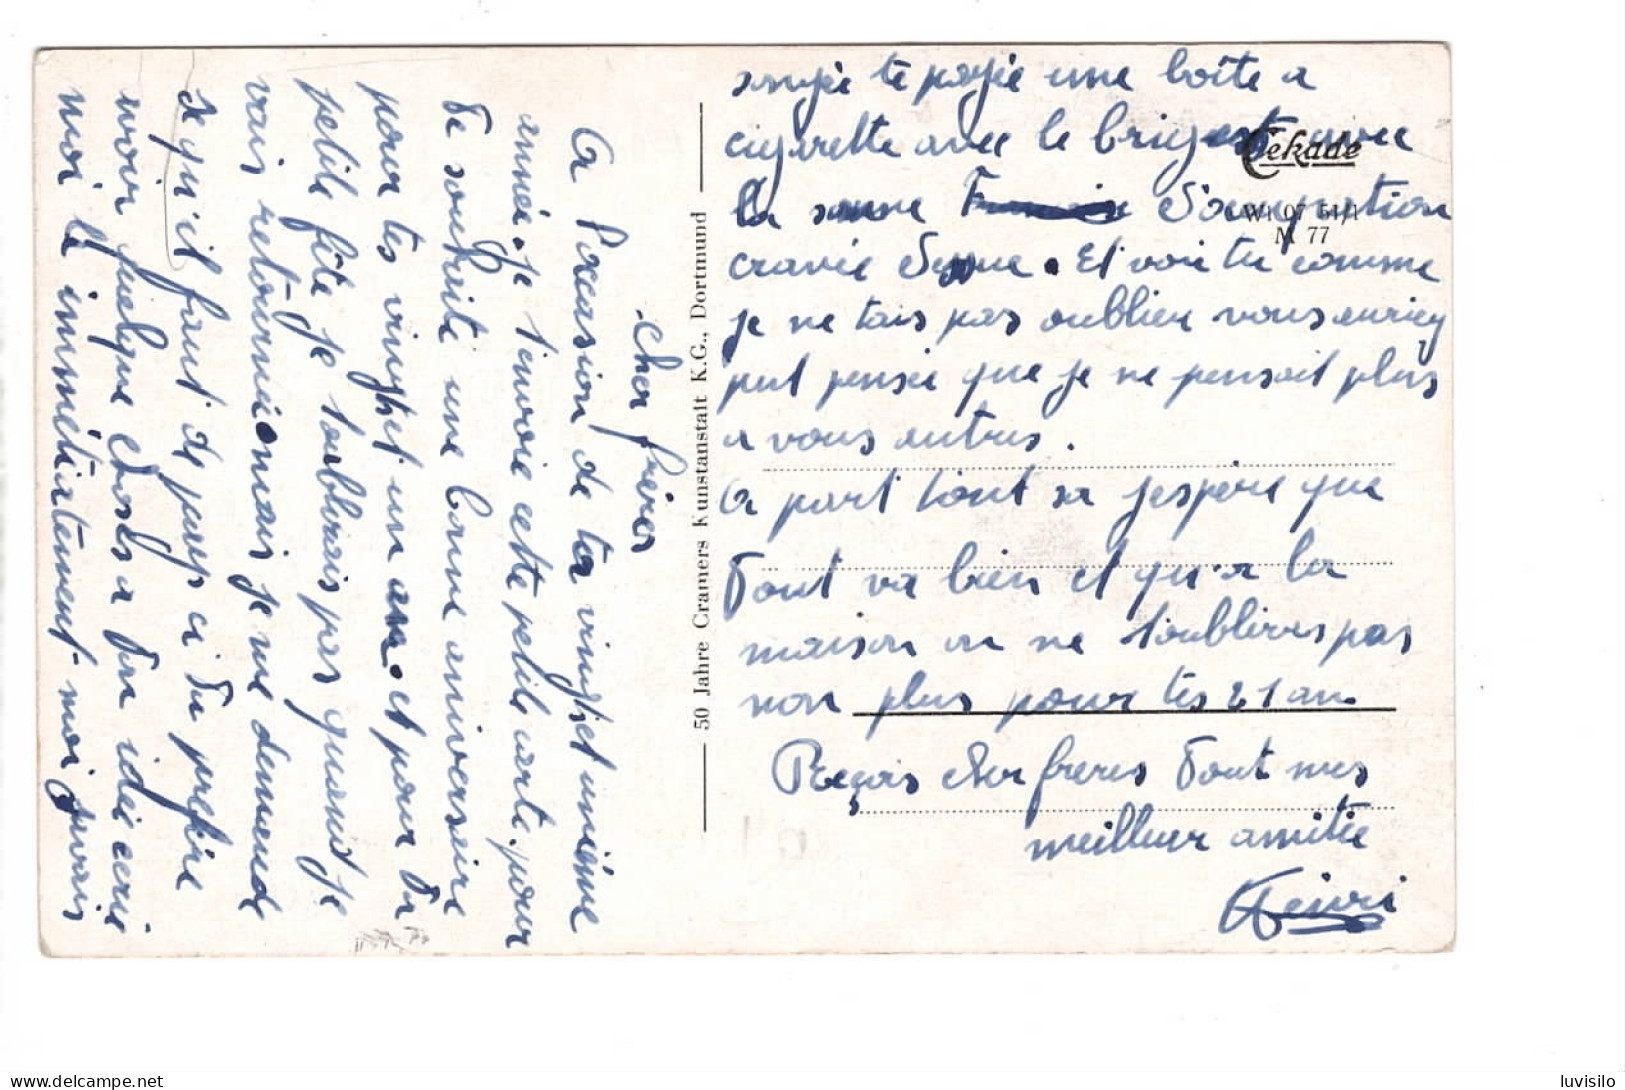 cher frères
A l'occasion de ta vingtiet unième
année. je t'envoie cette petite carte. pour
te souhaite une bonne anniverseire
pour tes vingtiet un ans. et pour ta
petite fête je t'oublirais pas quand je
vais retourné. mais je me demmende
se qu'il faut de puis si tu prefère
avoir quelque choses a ton idée écrie
moi le immédiatement. moi j'avais
songée te payée une boîte a
cigarette avec le briquet avec
la même Françoise d'occupation
gravée dessue. Et voie tu comme
je ne tais pas oublier vous auriey
put pensée que je ne pensait plus
a vous autres.
A part tout sa j'espère que
tout va bien et qu'a la
maison on ne t'oublieras pas
non plus pour tes 21 an.
Reçois cher frères tout mes
meilleur amitie
Henri
50 Jahre Cramers Kunstanstalt K.G., Dortmund
Cekade
Wi 97 51/1
M 77
delcampe.net
luvisilo